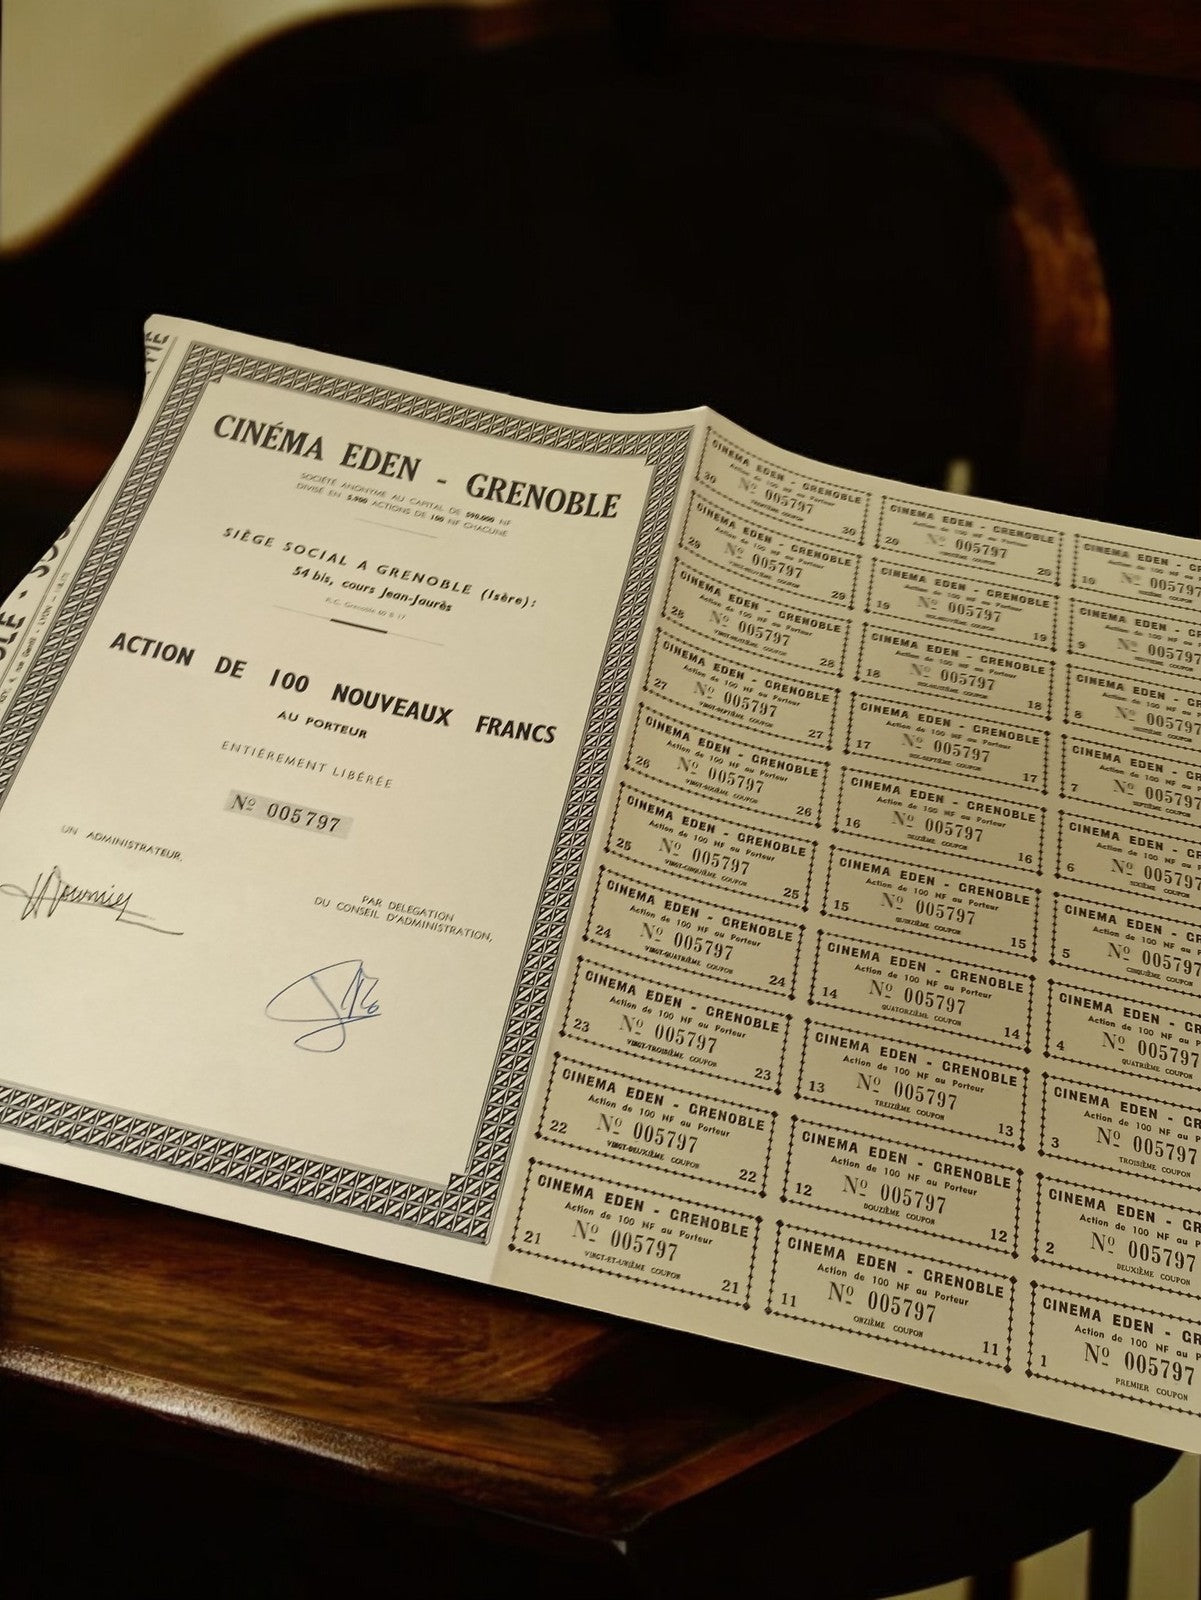 CINÉMA EDEN - GRENOBLE
SOCIÉTÉ ANONYME AU CAPITAL DE 590.000 NF
DIVISÉ EN 5.900 ACTIONS DE 100 NF CHACUNE
SIÈGE SOCIAL A GRENOBLE (Isère) :
54 bis, cours Jean-Jaurès
R.C. Grenoble 60 B 17
ACTION DE 100 NOUVEAUX FRANCS
AU PORTEUR
ENTIÈREMENT LIBÉRÉE
Nº 005797
UN ADMINISTRATEUR,
PAR DELEGATION
DU CONSEIL D'ADMINISTRATION,
CINEMA EDEN - GRENOBLE
Action de 100 NF au Porteur
30 Nº 005797 30
TRENTIÈME COUPON
CINEMA EDEN - GRENOBLE
Action de 100 NF au Porteur
29 Nº 005797 29
VINGT-NEUVIÈME COUPON
CINEMA EDEN - GRENOBLE
Action de 100 NF au Porteur
28 Nº 005797 28
VINGT-HUITIÈME COUPON
CINEMA EDEN - GRENOBLE
Action de 100 NF au Porteur
27 Nº 005797 27
VINGT-SEPTIÈME COUPON
CINEMA EDEN - GRENOBLE
Action de 100 NF au Porteur
26 Nº 005797 26
VINGT-SIXIÈME COUPON
CINEMA EDEN - GRENOBLE
Action de 100 NF au Porteur
25 Nº 005797 25
VINGT-CINQUIÈME COUPON
CINEMA EDEN - GRENOBLE
Action de 100 NF au Porteur
24 Nº 005797 24
VINGT-QUATRIÈME COUPON
CINEMA EDEN - GRENOBLE
Action de 100 NF au Porteur
23 Nº 005797 23
VINGT-TROISIÈME COUPON
CINEMA EDEN - GRENOBLE
Action de 100 NF au Porteur
22 Nº 005797 22
VINGT-DEUXIÈME COUPON
CINEMA EDEN - GRENOBLE
Action de 100 NF au Porteur
21 Nº 005797 21
VINGT-ET-UNIÈME COUPON
CINEMA EDEN - GRENOBLE
Action de 100 NF au Porteur
20 Nº 005797 20
VINGTIÈME COUPON
CINEMA EDEN - GRENOBLE
Action de 100 NF au Porteur
19 Nº 005797 19
DIX-NEUVIÈME COUPON
CINEMA EDEN - GRENOBLE
Action de 100 NF au Porteur
18 Nº 005797 18
DIX-HUITIÈME COUPON
CINEMA EDEN - GRENOBLE
Action de 100 NF au Porteur
17 Nº 005797 17
DIX-SEPTIÈME COUPON
CINEMA EDEN - GRENOBLE
Action de 100 NF au Porteur
16 Nº 005797 16
SEIZIÈME COUPON
CINEMA EDEN - GRENOBLE
Action de 100 NF au Porteur
15 Nº 005797 15
QUINZIÈME COUPON
CINEMA EDEN - GRENOBLE
Action de 100 NF au Porteur
14 Nº 005797 14
QUATORZIÈME COUPON
CINEMA EDEN - GRENOBLE
Action de 100 NF au Porteur
13 Nº 005797 13
TREIZIÈME COUPON
CINEMA EDEN - GRENOBLE
Action de 100 NF au Porteur
12 Nº 005797 12
DOUZIÈME COUPON
CINEMA EDEN - GRENOBLE
Action de 100 NF au Porteur
11 Nº 005797 11
ONZIÈME COUPON
CINEMA EDEN - GR
Action de 100 NF au P
10 Nº 005797
DIXIÈME COUPON
CINEMA EDEN - GR
Action de 100 NF au P
9 Nº 005797
NEUVIÈME COUPON
CINEMA EDEN - GR
Action de 100 NF au P
8 Nº 005797
HUITIÈME COUPON
CINEMA EDEN - GR
Action de 100 NF au P
7 Nº 005797
SEPTIÈME COUPON
CINEMA EDEN - GR
Action de 100 NF au P
6 Nº 005797
SIXIÈME COUPON
CINEMA EDEN - GR
Action de 100 NF au P
5 Nº 005797
CINQUIÈME COUPON
CINEMA EDEN - GR
Action de 100 NF au P
4 Nº 005797
QUATRIÈME COUPON
CINEMA EDEN - GR
Action de 100 NF au P
3 Nº 005797
TROISIÈME COUPON
CINEMA EDEN - GR
Action de 100 NF au P
2 Nº 005797
DEUXIÈME COUPON
CINEMA EDEN - GR
Action de 100 NF au P
1 Nº 005797
PREMIER COUPON